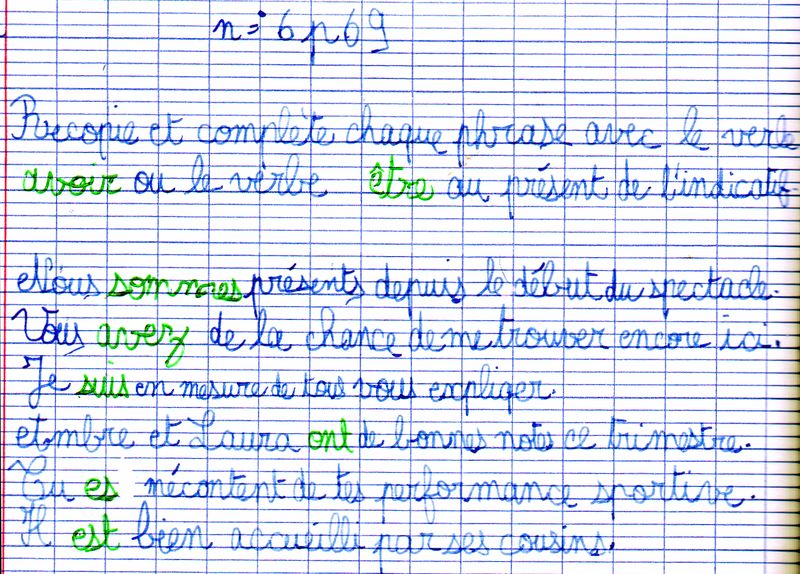 n=° 6 p 69
Recopie et complète chaque phrase avec le verbe
avoir ou le verbe être au présent de l'indicatif.
Nous sommes présents depuis le début du spectacle.
Vous avez de la chance de me trouver encore ici.
Je suis en mesure de tous vous expliger.
et mbre et Laura ont de bonnes notes ce trimestre.
Tu es mécontent de tes performance sportive.
Il est bien accueilli par ses cousins.